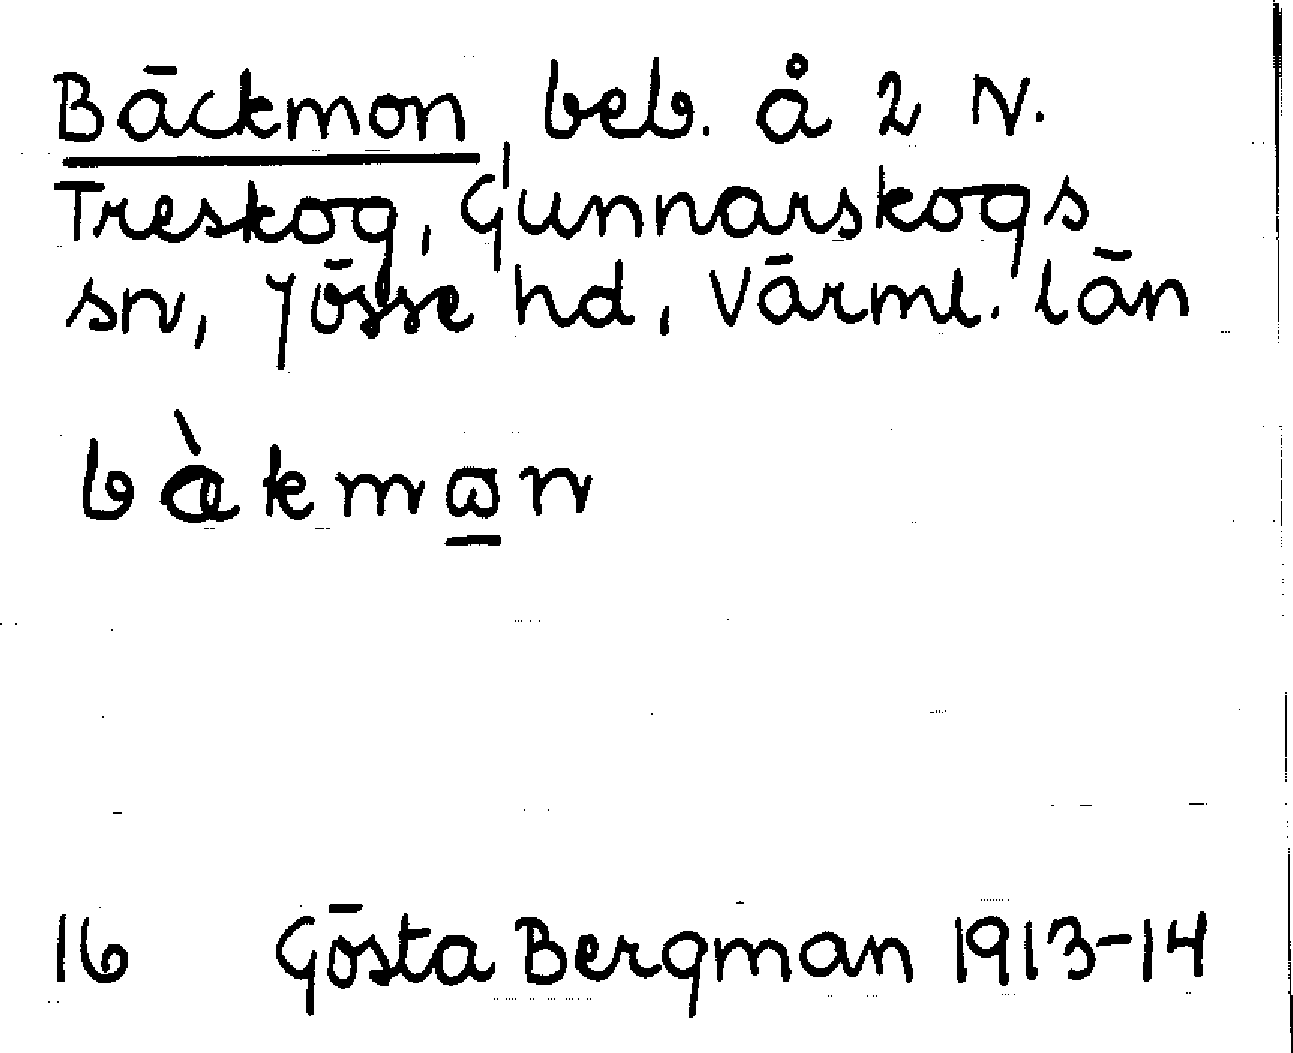 Bäckmon beb. å 2 N.
Treskog, Gunnarskogs
sn, Jösse hd, Värml. län
bæ̀kmɷ̲n
16 Gösta Bergman 1913-14